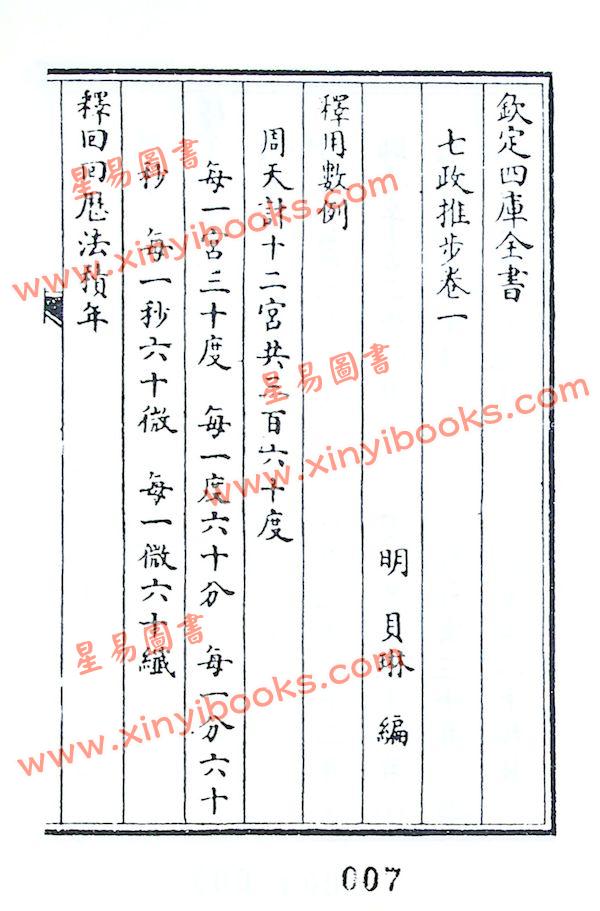 欽定四庫全書
七政推步卷一
明 貝琳 編
釋用數例
周天計十二宮共三百六十度
每一宮三十度 每一度六十分 每一分六十
秒 每一秒六十微 每一微六十纖
釋回回歴法積年
星易圖書
www.xinyibooks.com
星易圖書
www.xinyibooks.com
星易圖書
www.xinyibooks.com
007